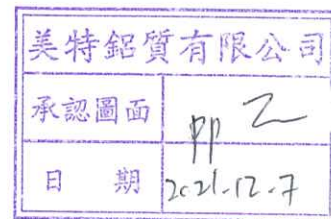 美特鋁質有限公司
承認圖面 PP
日 期 2021.12.7